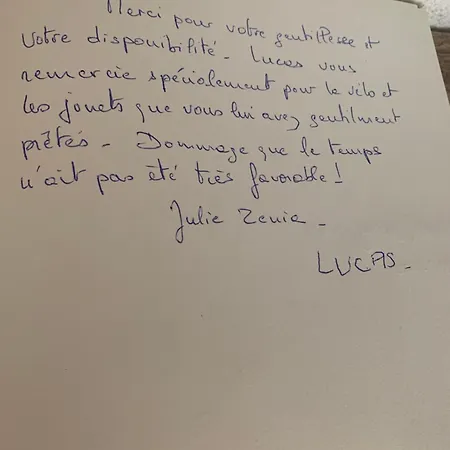 Merci pour votre gentillesse et
votre disponibilité - Lucas vous
remercie spécialement pour le vélo et
les jouets que vous lui avez gentilment
prêtés - Dommage que le temps
n'ait pas été très favorable !
Julie Zenia -
LUCAS -